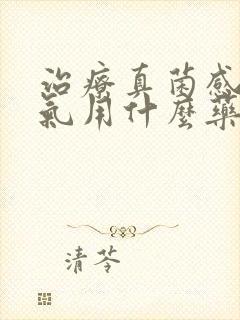 治療真菌感
氣用什麼藥
清苓